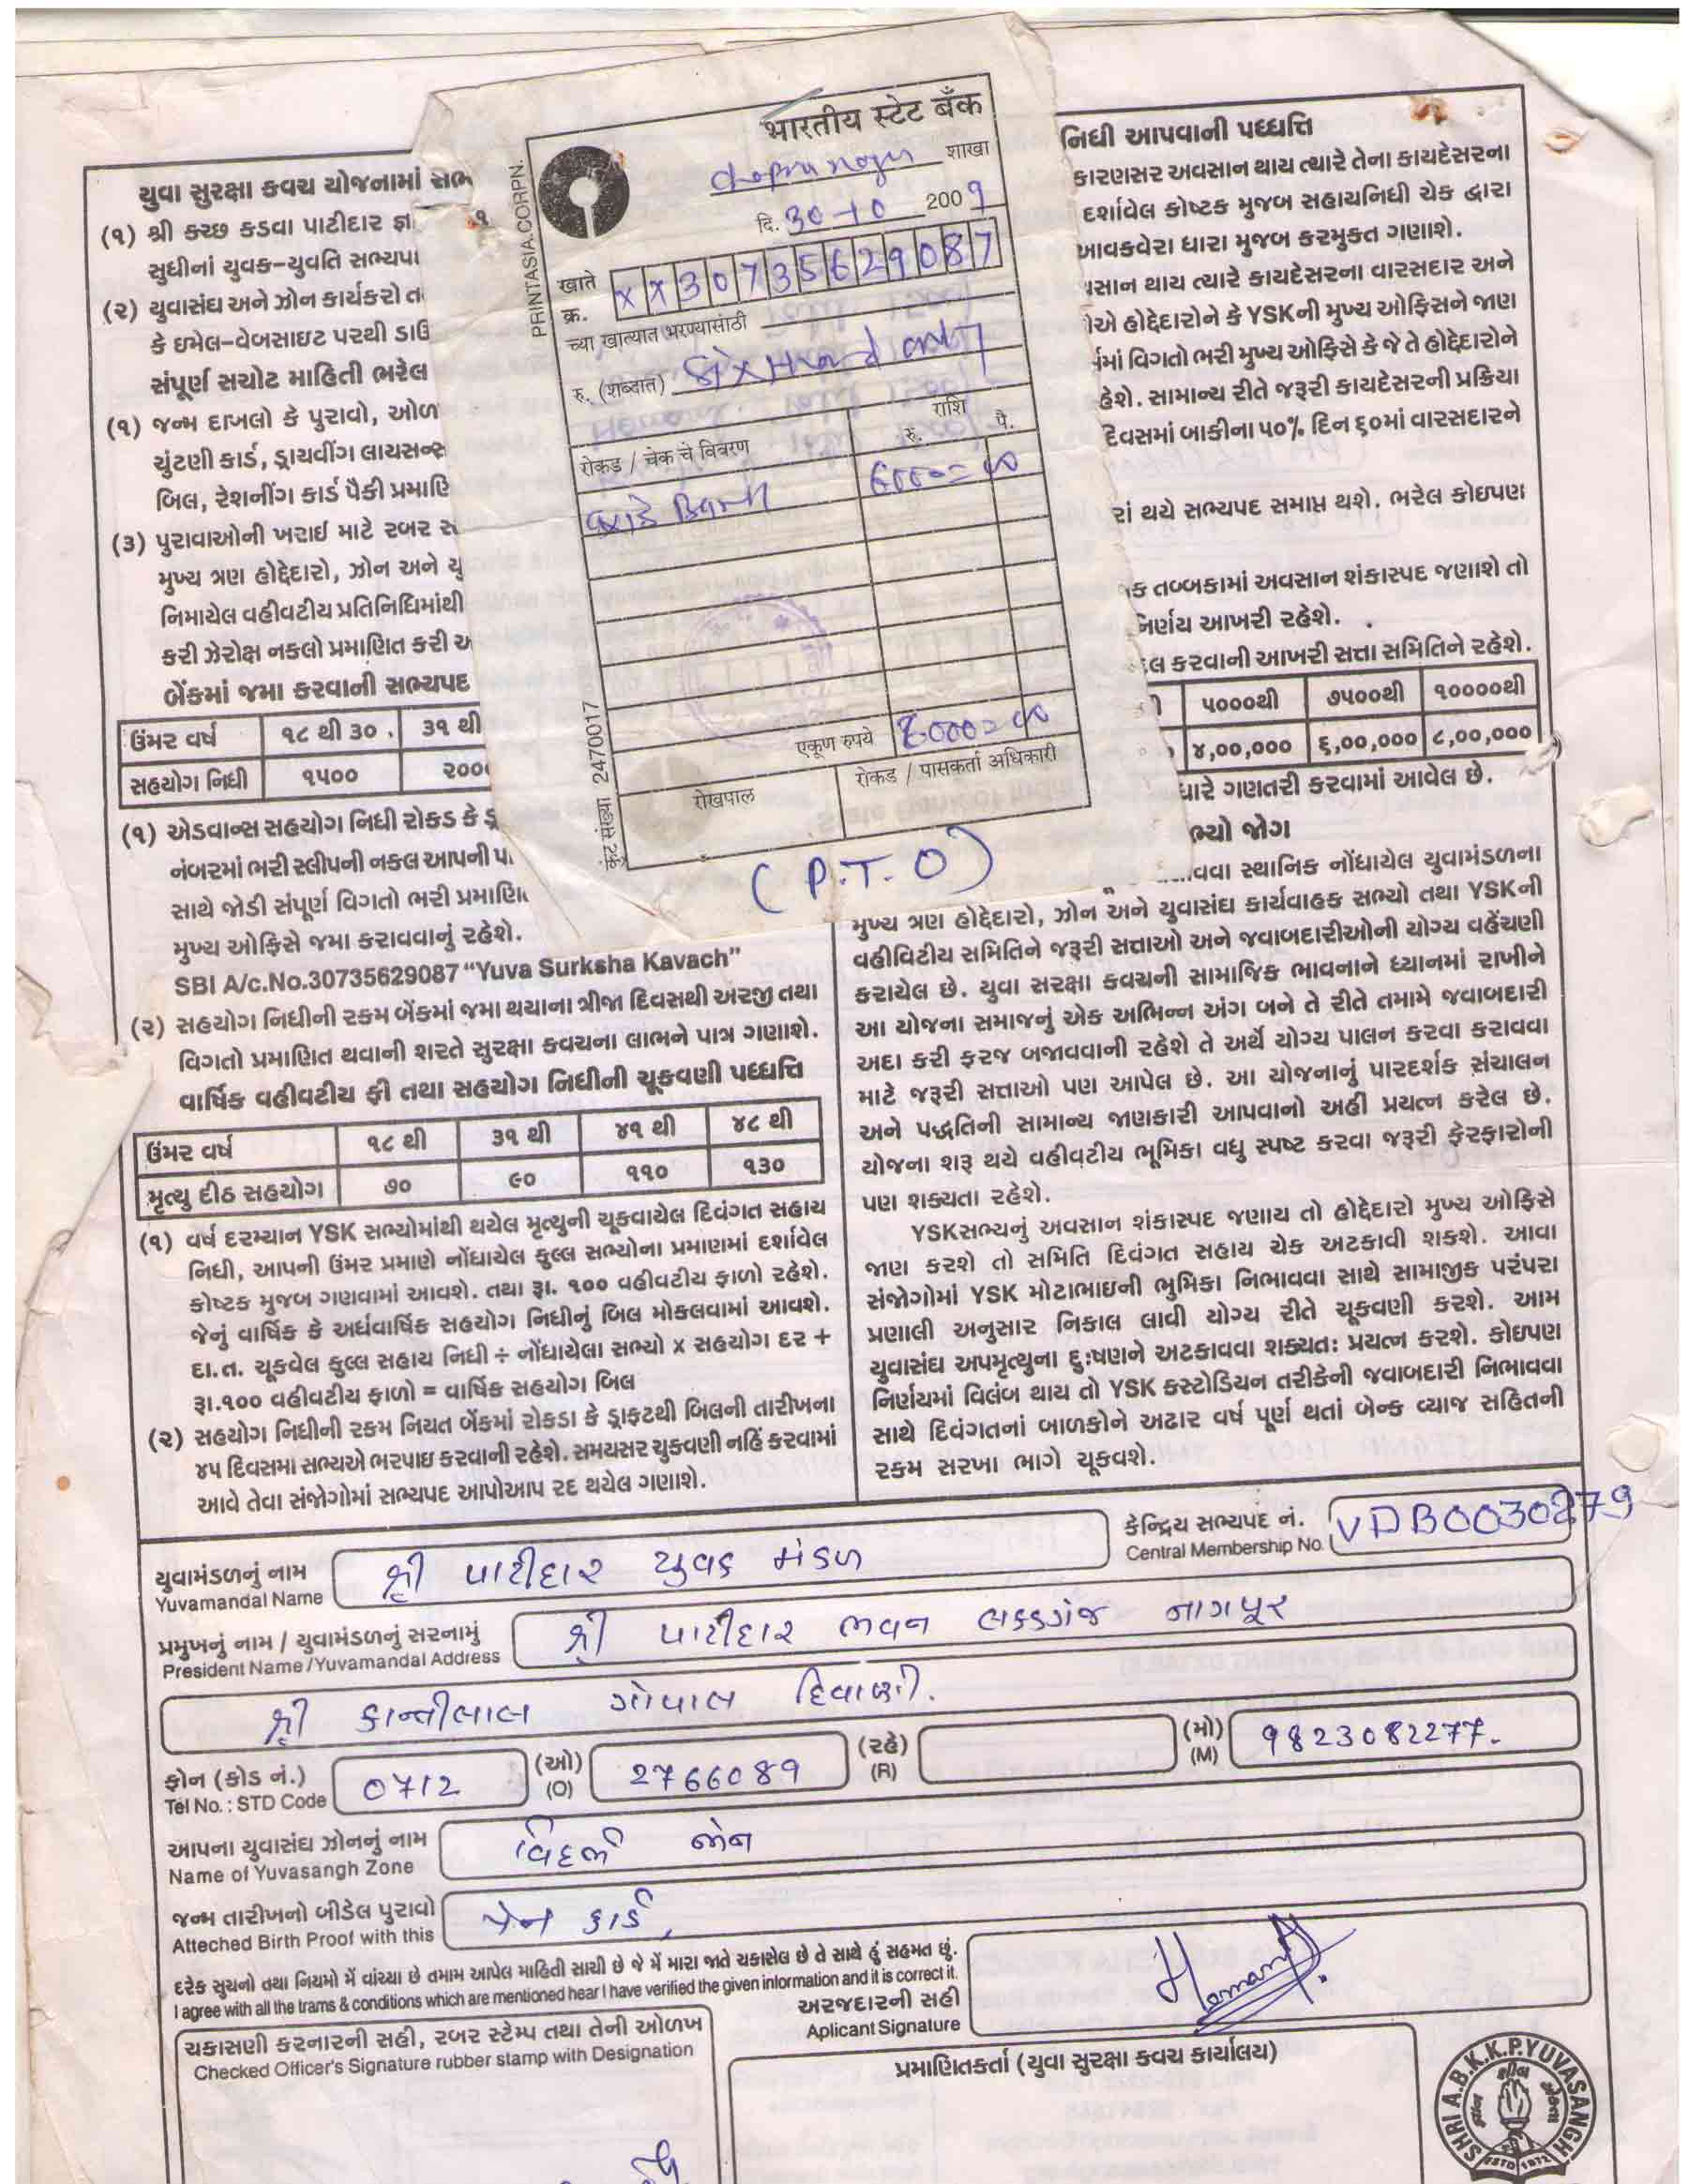 યુવા સુરક્ષા કવચ યોજનામાં સભ
(૧) શ્રી કચ્છ કડવા પાટીદાર જ્ઞા
સુધીનાં યુવક-યુવતિ સભ્યપ
(૨) યુવાસંઘ અને ઝોન કાર્યકરો ત
કે ઇમેલ-વેબસાઇટ પરથી ડાઉ
સંપૂર્ણ સચોટ માહિતી ભરેલ
(૧) જન્મ દાખલો કે પુરાવો, ઓળ
ચુંટણી કાર્ડ, ડ્રાયવીંગ લાયસન્સ
બિલ, રેશનીંગ કાર્ડ પૈકી પ્રમાણિ
(૩) પુરાવાઓની ખરાઈ માટે રબર સ
મુખ્ય ત્રણ હોદ્દેદારો, ઝોન અને યુ
નિમાયેલ વહીવટીય પ્રતિનિધિમાંથી
કરી ઝેરોક્ષ નકલો પ્રમાણિત કરી અ
બેંકમાં જમા કરવાની સભ્યપદ
ઉંમર વર્ષ ૧૮ થી ૩૦ . ૩૧ થી
સહયોગ નિધી ૧૫૦૦ ૨૦૦
(૧) એડવાન્સ સહયોગ નિધી રોકડ કે ડ્ર
નંબરમાં ભરી સ્લીપની નકલ આપની પા
સાથે જોડી સંપૂર્ણ વિગતો ભરી પ્રમાણિ
મુખ્ય ઓફિસે જમા કરાવવાનું રહેશે.
SBI A/c.No.30735629087 “Yuva Surksha Kavach”
(૨) સહયોગ નિધીની રકમ બેંકમાં જમા થયાના ત્રીજા દિવસથી અરજી તથા
વિગતો પ્રમાણિત થવાની શરતે સુરક્ષા કવચના લાભને પાત્ર ગણાશે.
વાર્ષિક વહીવટીય ફી તથા સહયોગ નિધીની ચૂકવણી પધ્ધતિ
ઉંમર વર્ષ ૧૮ થી ૩૧ થી ૪૧ થી ૪૮ થી
મૃત્યુ દીઠ સહયોગ ૭૦ ૯૦ ૧૧૦ ૧૩૦
(૧) વર્ષ દરમ્યાન YSK સભ્યોમાંથી થયેલ મૃત્યુની ચૂકવાયેલ દિવંગત સહાય
નિધી, આપની ઉંમર પ્રમાણે નોંધાયેલ કુલ્લ સભ્યોના પ્રમાણમાં દર્શાવેલ
કોષ્ટક મુજબ ગણવામાં આવશે. તથા રૂા. ૧૦૦ વહીવટીય ફાળો રહેશે.
જેનું વાર્ષિક કે અર્ધવાર્ષિક સહયોગ નિધીનું બિલ મોકલવામાં આવશે.
દા.ત. ચૂકવેલ કુલ્લ સહાય નિધી ÷ નોંધાયેલા સભ્યો x સહયોગ દર +
રૂા.૧૦૦ વહીવટીય ફાળો = વાર્ષિક સહયોગ બિલ
(૨) સહયોગ નિધીની રકમ નિયત બેંકમાં રોકડા કે ડ્રાફટથી બિલની તારીખના
૪૫ દિવસમા સભ્યએ ભરપાઇ કરવાની રહેશે. સમયસર ચુકવણી નહિં કરવામાં
આવે તેવા સંજોગોમાં સભ્યપદ આપોઆપ રદ થયેલ ગણાશે.
PRINTASIA.CORPN.
भारतीय स्टेट बँक
शाखा
दि. 30-10 2009
खाते क्र. X X 3 0 7 3 5 6 2 9 0 8 7
च्या खात्यात भरण्यासाठी
रु. (शब्दात)
रोकड / चेक चे विवरण राशि
रु. पै.
6000=00
एकूण रुपये 6000=00
रोखपाल रोकड / पासकर्ता अधिकारी
कुंट संख्या 2470017
(P.T.O)
નિધી આપવાની પધ્ધતિ
કારણસર અવસાન થાય ત્યારે તેના કાયદેસરના
દર્શાવેલ કોષ્ટક મુજબ સહાયનિધી ચેક દ્વારા
આવકવેરા ધારા મુજબ કરમુકત ગણાશે.
સાન થાય ત્યારે કાયદેસરના વારસદાર અને
એ હોદ્દેદારોને કે YSKની મુખ્ય ઓફિસને જાણ
ર્મમાં વિગતો ભરી મુખ્ય ઓફિસે કે જે તે હોદ્દેદારોને
હેશે. સામાન્ય રીતે જરૂરી કાયદેસરની પ્રક્રિયા
દિવસમાં બાકીના ૫૦% દિન ૬૦માં વારસદારને
રાં થયે સભ્યપદ સમાપ્ત થશે. ભરેલ કોઇપણ
ક તબ્બકામાં અવસાન શંકાસ્પદ જણાશે તો
નિર્ણય આખરી રહેશે.
લ કરવાની આખરી સત્તા સમિતિને રહેશે.
૫૦૦૦થી ૭૫૦૦થી ૧૦૦૦૦થી
૪,૦૦,૦૦૦ ૬,૦૦,૦૦૦ ૮,૦૦,૦૦૦
ધારે ગણતરી કરવામાં આવેલ છે.
ભ્યો જોગ
વવા સ્થાનિક નોંધાયેલ યુવામંડળના
મુખ્ય ત્રણ હોદ્દેદારો, ઝોન અને યુવાસંઘ કાર્યવાહક સભ્યો તથા YSKની
વહીવિટીય સમિતિને જરૂરી સત્તાઓ અને જવાબદારીઓની યોગ્ય વહેંચણી
કરાયેલ છે. યુવા સરક્ષા કવચની સામાજિક ભાવનાને ધ્યાનમાં રાખીને
આ યોજના સમાજનું એક અભિન્ન અંગ બને તે રીતે તમામે જવાબદારી
અદા કરી ફરજ બજાવવાની રહેશે તે અર્થે યોગ્ય પાલન કરવા કરાવવા
માટે જરૂરી સત્તાઓ પણ આપેલ છે. આ યોજનાનું પારદર્શક સંચાલન
અને પદ્ધતિની સામાન્ય જાણકારી આપવાનો અહી પ્રયત્ન કરેલ છે.
યોજના શરૂ થયે વહીવટીય ભૂમિકા વધુ સ્પષ્ટ કરવા જરૂરી ફેરફારોની
પણ શક્યતા રહેશે.
YSKસભ્યનું અવસાન શંકાસ્પદ જણાય તો હોદ્દેદારો મુખ્ય ઓફિસે
જાણ કરશે તો સમિતિ દિવંગત સહાય ચેક અટકાવી શકશે. આવા
સંજોગોમાં YSK મોટાભાઇની ભુમિકા નિભાવવા સાથે સામાજીક પરંપરા
પ્રણાલી અનુસાર નિકાલ લાવી યોગ્ય રીતે ચૂકવણી કરશે. આમ
યુવાસંઘ અપમૃત્યુના દુઃષણને અટકાવવા શક્યતઃ પ્રયત્ન કરશે. કોઇપણ
નિર્ણયમાં વિલંબ થાય તો YSK કસ્ટોડિયન તરીકેની જવાબદારી નિભાવવા
સાથે દિવંગતનાં બાળકોને અઢાર વર્ષ પૂર્ણ થતાં બેન્ક વ્યાજ સહિતની
રકમ સરખા ભાગે ચૂકવશે.
કેન્દ્રિય સભ્યપદ નં. VDB0030279
Central Membership No.
યુવામંડળનું નામ શ્રી પાટીદાર યુવક મંડળ
Yuvamandal Name
પ્રમુખનું નામ / યુવામંડળનું સરનામું શ્રી પાટીદાર ભવન લકડગંજ નાગપૂર
President Name/Yuvamandal Address
શ્રી કાન્તીલાલ ગોપાલ દિવાણી.
ફોન (કોડ નં.) 0712 (ઓ) 2766089 (રહે) (મો) 9823082277.
Tel No. : STD Code (O) (R) (M)
આપના યુવાસંઘ ઝોનનું નામ વિદર્ભ જોન
Name of Yuvasangh Zone
જન્મ તારીખનો બીડેલ પુરાવો પેન કાર્ડ,
Atteched Birth Proof with this
દરેક સુચનો તથા નિયમો મેં વાંચ્યા છે તમામ આપેલ માહિતી સાચી છે જે મેં મારા જાતે ચકાસેલ છે તે સાથે હું સહમત છું.
I agree with all the trams & conditions which are mentioned hear I have verified the given information and it is correct it.
અરજદારની સહી
Aplicant Signature
ચકાસણી કરનારની સહી, રબર સ્ટેમ્પ તથા તેની ઓળખ
Checked Officer's Signature rubber stamp with Designation
પ્રમાણિતકર્તા (યુવા સુરક્ષા કવચ કાર્યાલય)
SHRI A.B.K.K.P.YUVASANGH
ESTD 1972